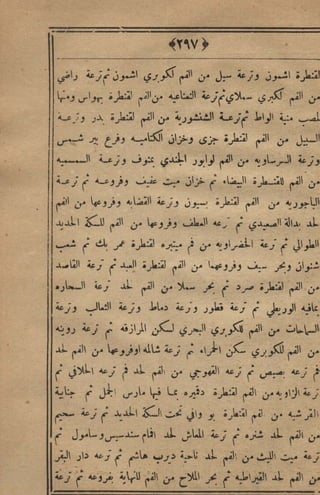 ﴿٢٩٧﴾
لقنطرة اشمون وترعة سيل من الفم لكوبري اشمون ثم ترعة راضي
من الفم لكبري سملاي ثم ترعة النعناعيه من الفم لقنطرة بهواس ومنها
لمصب منية الواط ثم ترعة الشنشورية من الفم لقنطرة بدر وترعة
السبيل من الفم لقنطرة جزى وخزان الكتاميه وفرع بير شمس
وترعة السرساويه من الفم لوابور الجندي بمنوف وترعة السمسميه
من الفم للقنطرة البيضاء ثم خزان ميت عفيف وفروعه ثم ترعة
الباجوريه من الفم لقنطرة بسيون وترعة القضابه وفروعها من الفم
لحد بدالة الصعيدي ثم ترعه العطف وفروعها من الفم للسكة الحديد
الطوالي ثم ترعة الخضراويه من فم ميتبره لقنطرة عمر بك ثم شعب
شنوان وبحر سيف وفروعهما من الفم لقنطرة العبد ثم ترعة القاصد
من الفم لقنطرة صرد ثم بحر سملا من الفم لحد ترعة السحاره
بمافيه الوريطي ثم ترعة قطور وترعة دماط وترعة الثعالب وترعة
الساحات من الفم للكوبري البحري لسكن المرازقه ثم ترعة روينه
من الفم للكوبري سكن الحمراء ثم ترعة شالمه اوفروعها من الفم لحد
فم ترعه بصيص ثم ترعه القهوجي من الفم لحد فم ترعه الخلافي ثم
ترعة الزاويه من الفم لقنطرة دقميره بما فيها مارس الجمل ثم جنابية
القرشيه من الفم لقنطرة بو وافي تحت السكة الحديد ثم ترعة سحيم
من الفم لحد شنره ثم ترعة المعاش لحد افمام سندسيس وسامول ثم
ترعة ميت الليث من الفم لحد ناحية ديرب هاشم ثم ترعه دار البقر
من الفم لحد القيراطيه ثم بحر الملاح من الفم للنهاية بفروعه ثم ترعة